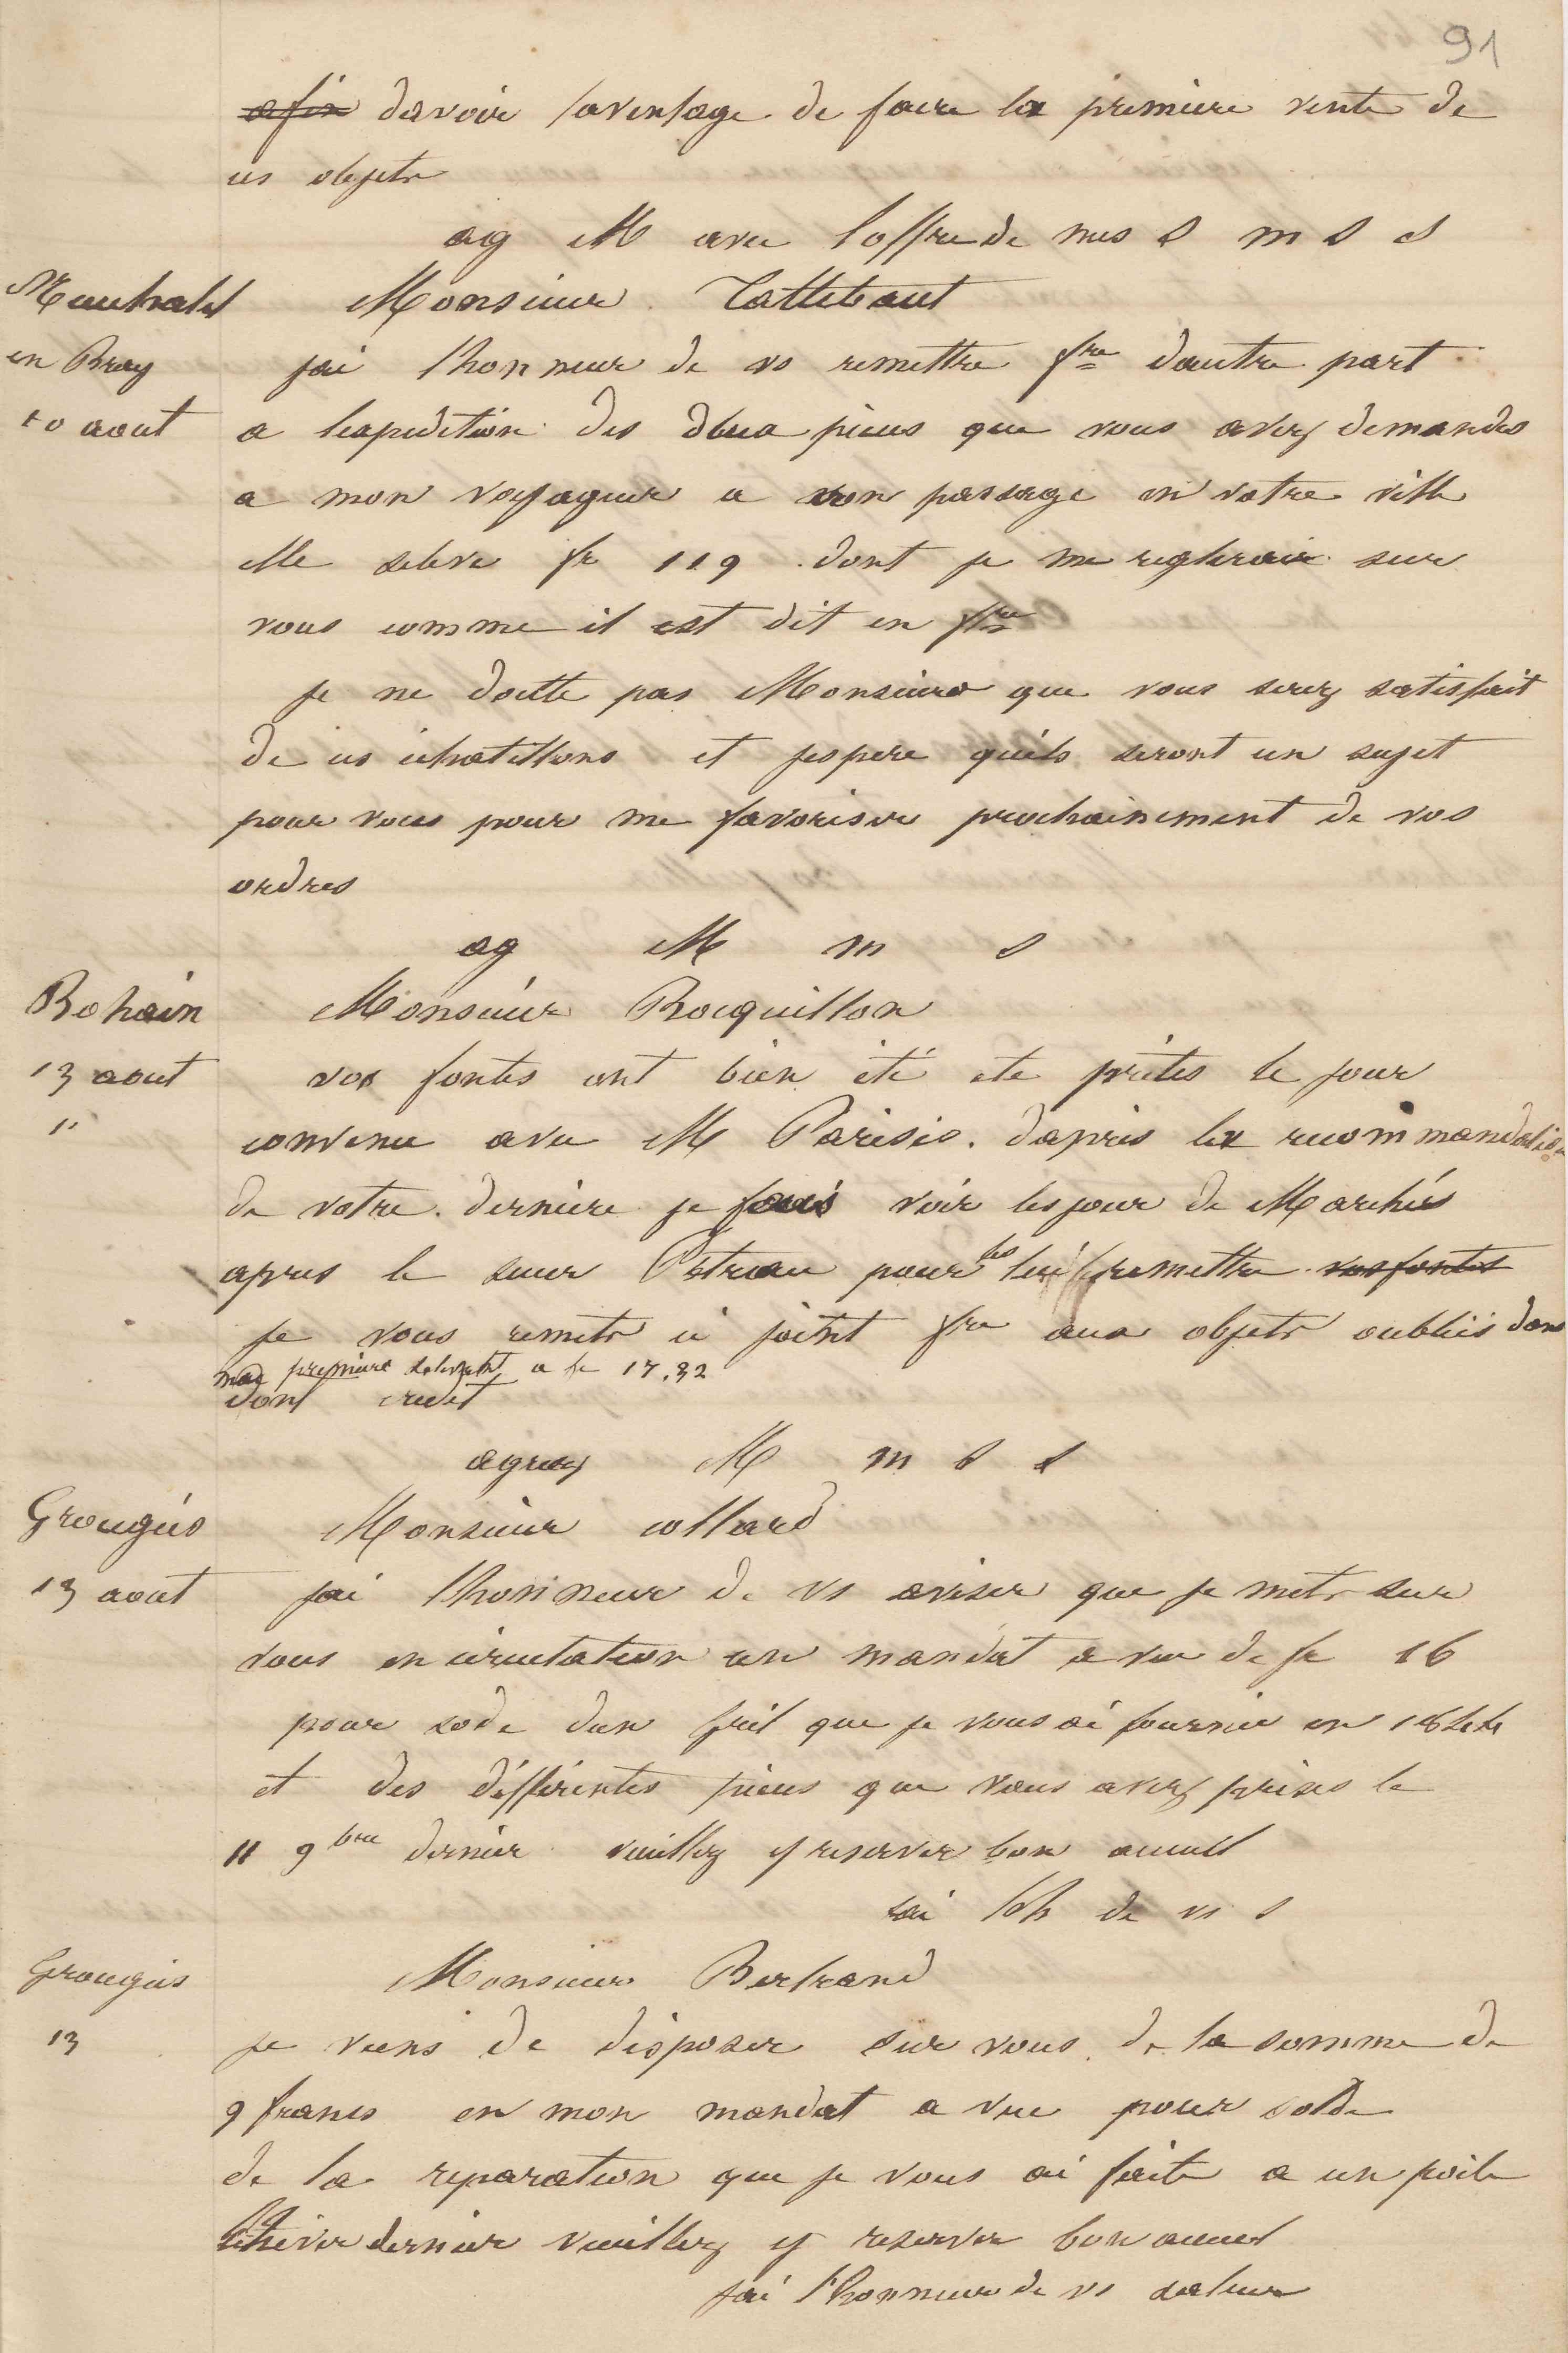 91
afin davoir lavantage de faire la premiere vente de
ces objets
ag M avec loffre de mes S m S d
Neufchatel
en Bray
10 aout
Monsieur
jai lhonneur de vs remettre fre dautre part
a lexpedition des deux pieces que vous avez demandes
a mon voyageur a son passage en votre ville
elle seleve fr 119 dont je me reglerais sur
vous comme il est dit en fre
je ne doutte pas Monsieur que vous serez satisfait
de ces échatillons et jespere quils seront un sujet
pour vous pour me favoriser prochainement de vos
ordres
ag M m s
Bohain
13 aout
"
Monsieur Rocquillon
vos fontes ont bien été ete prêtes le jour
convenu avec M Parisis. dapres la recommandation
de votre derniere je fais voir les jour de Marchés
apres le sieur Pétreau pour les lui remettre vos fontes
je vous remets ci joint fre aux objets oubliés dans
ma premiere selevent a fr 17.32
dont credit
agreez M m S s
Grougis
13 aout
Monsieur collard
jai lhonneur de vs aviser que je mets sur
vous en circulation un mandat a vue de fr 16
pour sode dun gril que je vous ai fournie en 1844
et des différentes pieces que vous avez prises le
11 9bre dernier veuillez y reserver bon acueil
jai lh de vs s
Grougis
13
Monsieur Bertrand
je viens de disposer sur vous de la somme de
9 francs en mon mandat a vue pour solde
de la reparation que je vous ai faite a un poile
lhiver dernier veuillez y reserver bon acueil
jai lhonneur de vs saluer